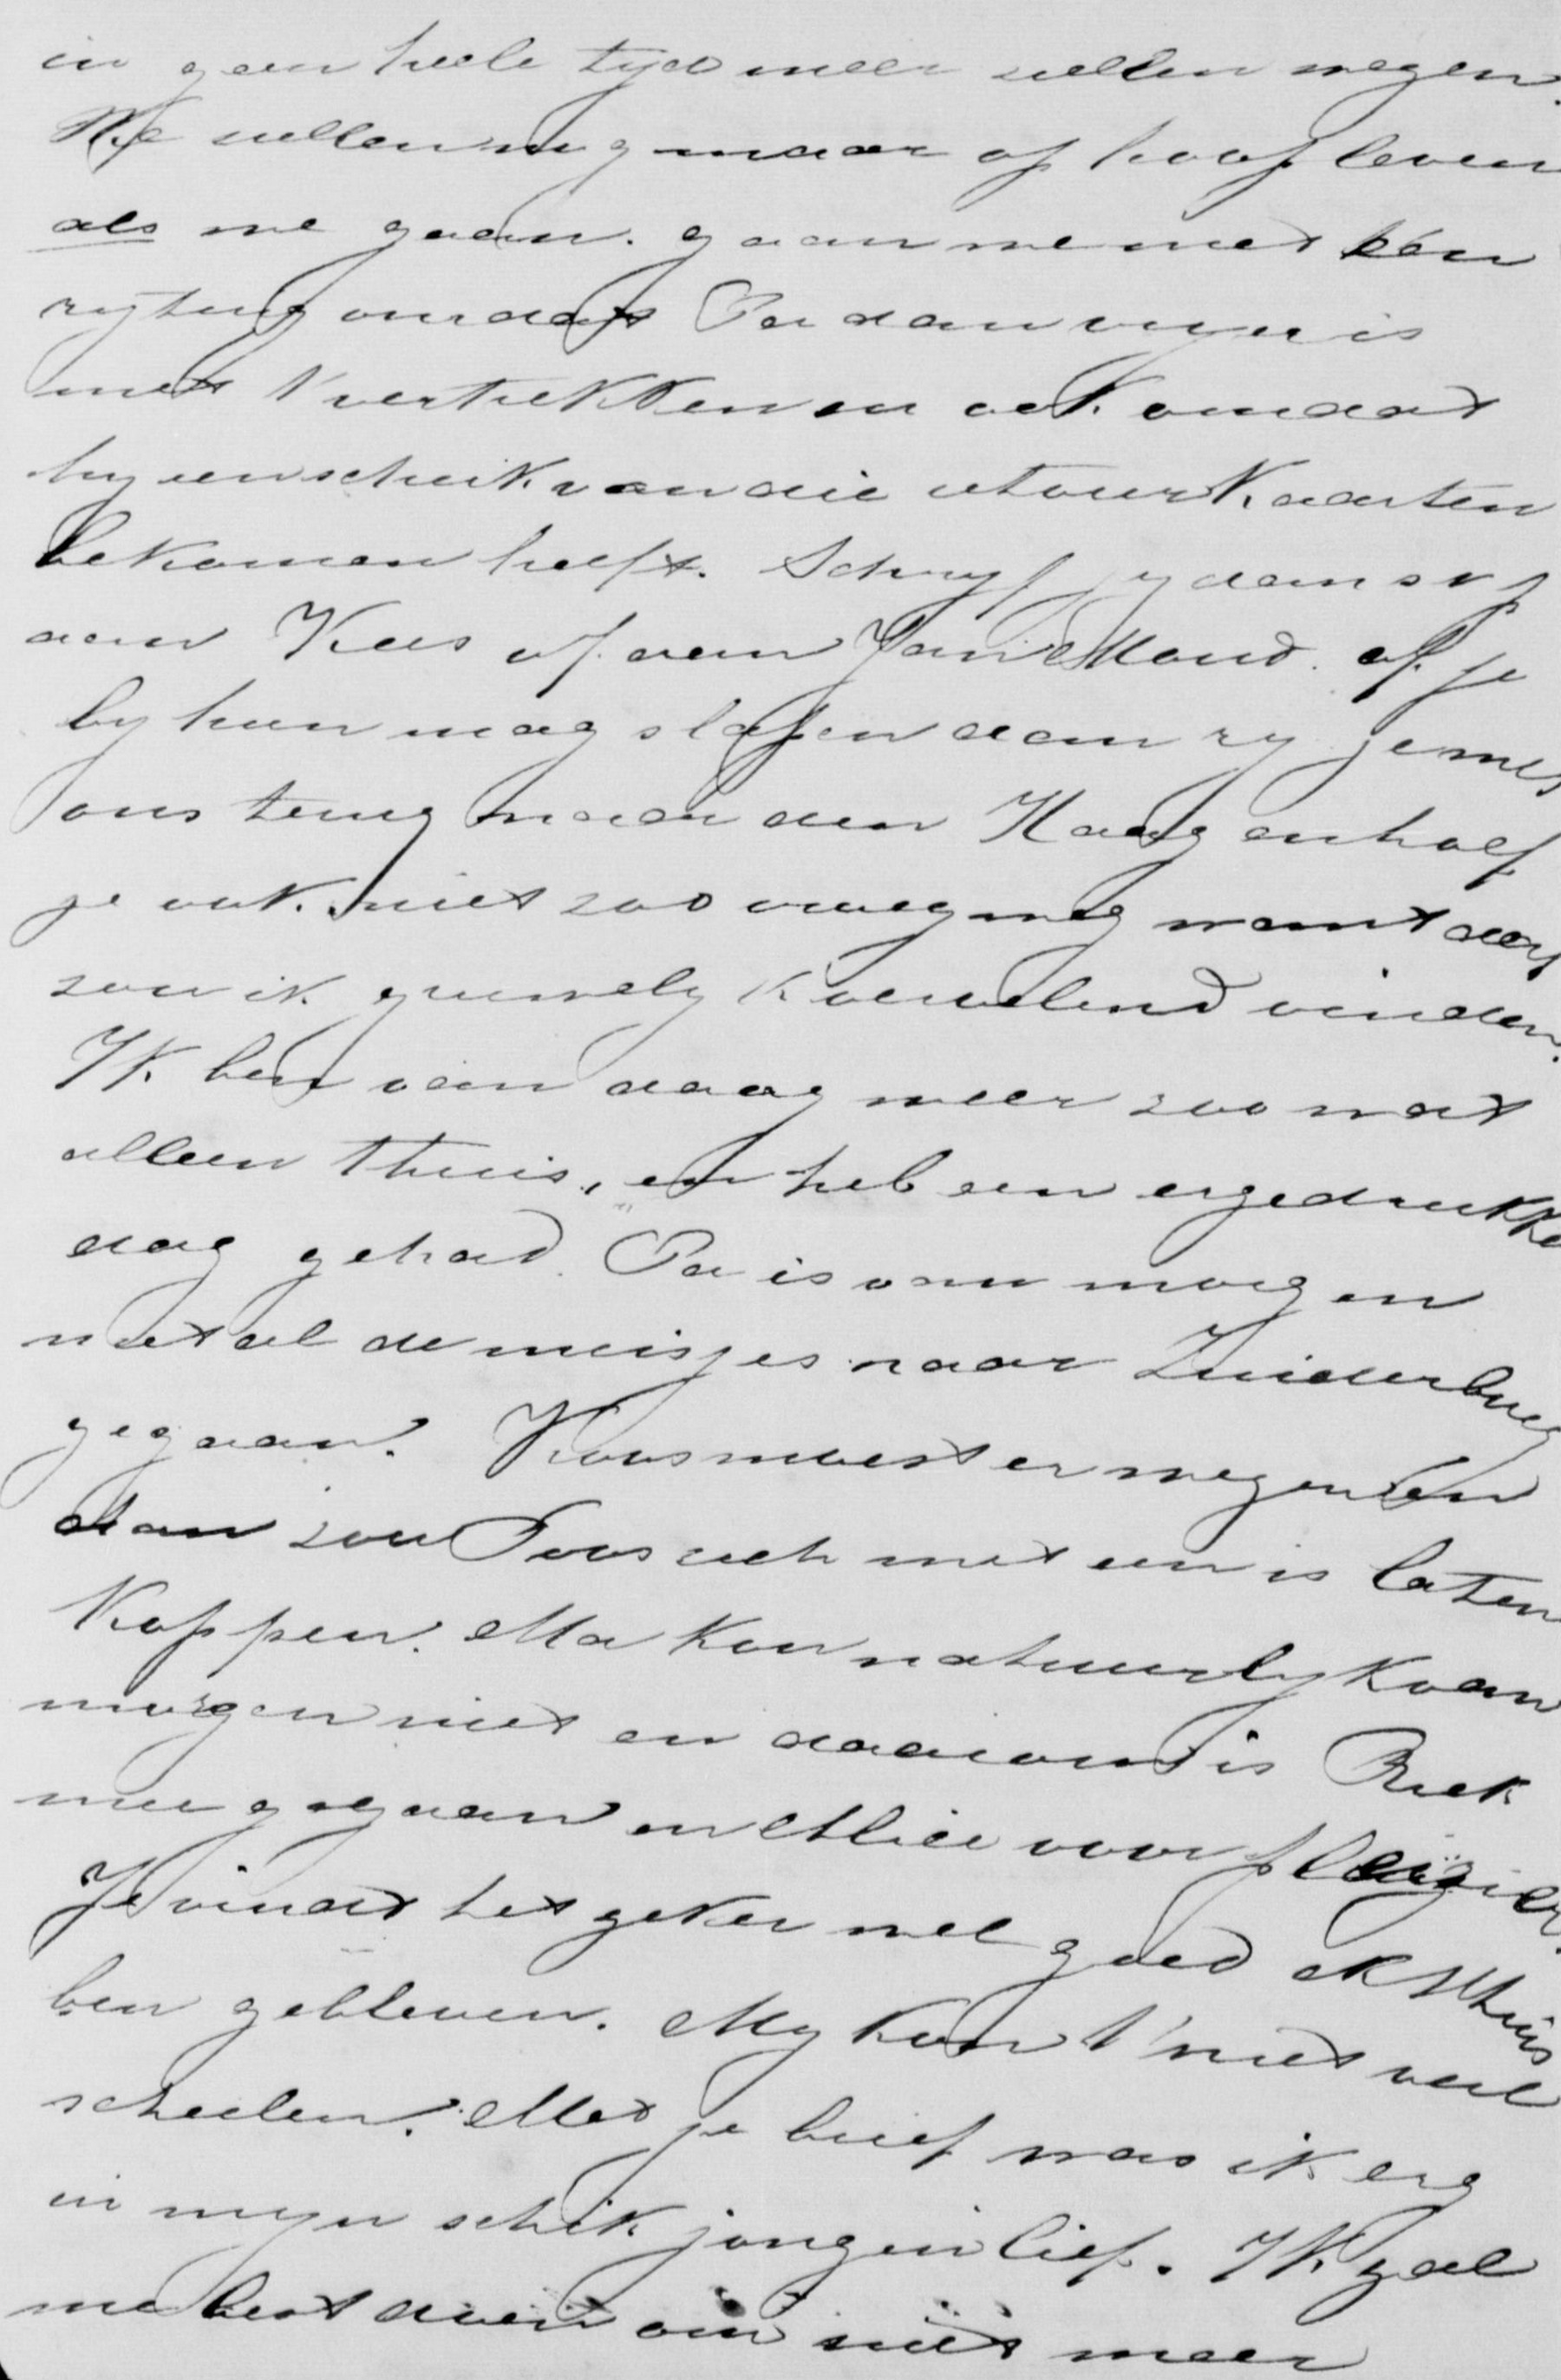 in geen heele tyd meer zullen mogen.
We zullen nog maar op hoop leven
als we gaan. gaan we met een
rytuig omdat Pa dan vryer is
met 't vertrekken en ook omdat
hy een schrik van die retourkaarten
bekomen heeft. Schryf jy dan s.v.p
aan Kees of aan Jan Mond. of je
by hun mag slapen dan ry je met
ons terug naar den Haag en hoef
je ook niet zoo vroeg weg want dat
zou ik gruwelyk vervelend vinden.
Ik ben van daag weer zoo wat
alleen thuis, en heb een erge drukke
dag gehad. Pa is van morgen
met al de meisjes naar Zuiderburg
gegaan. Koos moest er wezen en
dan zou Toos zich met een is laten
Kappen. Ma kon natuurlyk van
morgen niet en daarom is Riek
mee gegaan en Alice voor plaizier.
Je vindt het zeker wel goed ik thuis
ben gebleven. My kon 't niet veel
scheelen. Met je brief was ik erg
in myn schik jongen lief. Ik zal
me best doen om niet meer